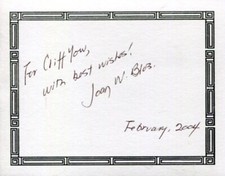 For Cliff Yow,
with best wishes!
Joan W. Blos.
February, 2004